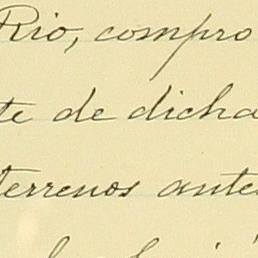 Rio, compro
te de dicha
terrenos ante